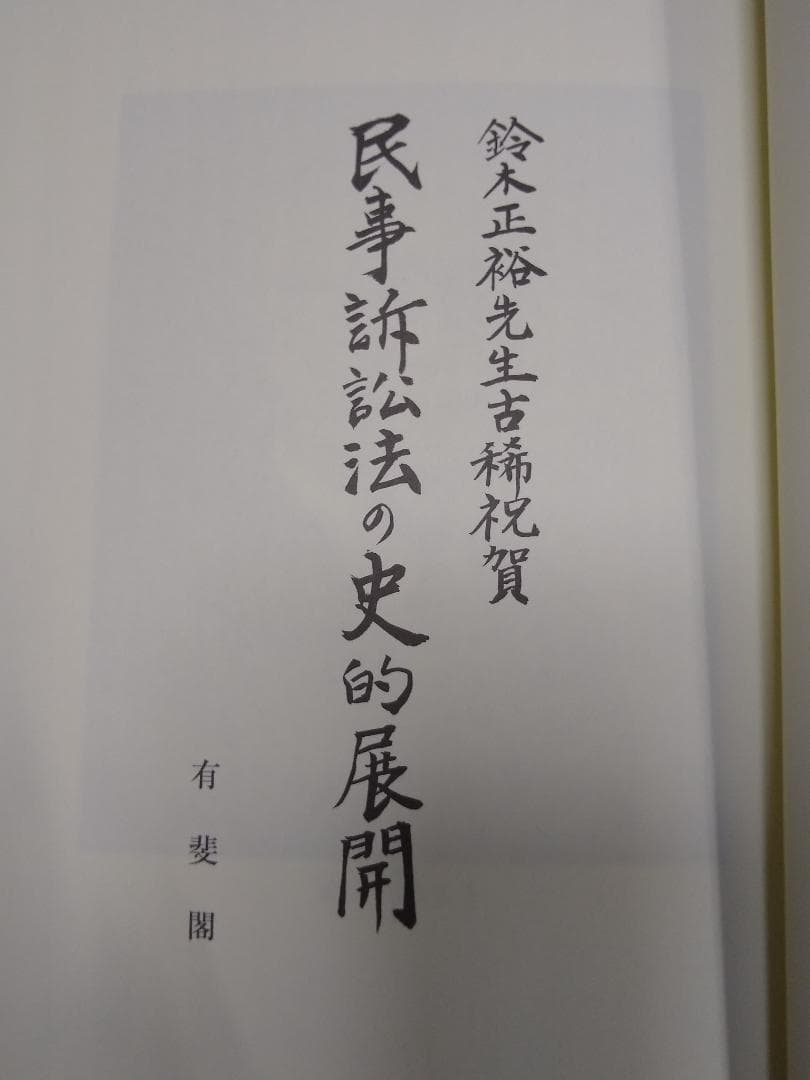 鈴木正裕先生古稀祝賀
民事訴訟法の史的展開
有斐閣